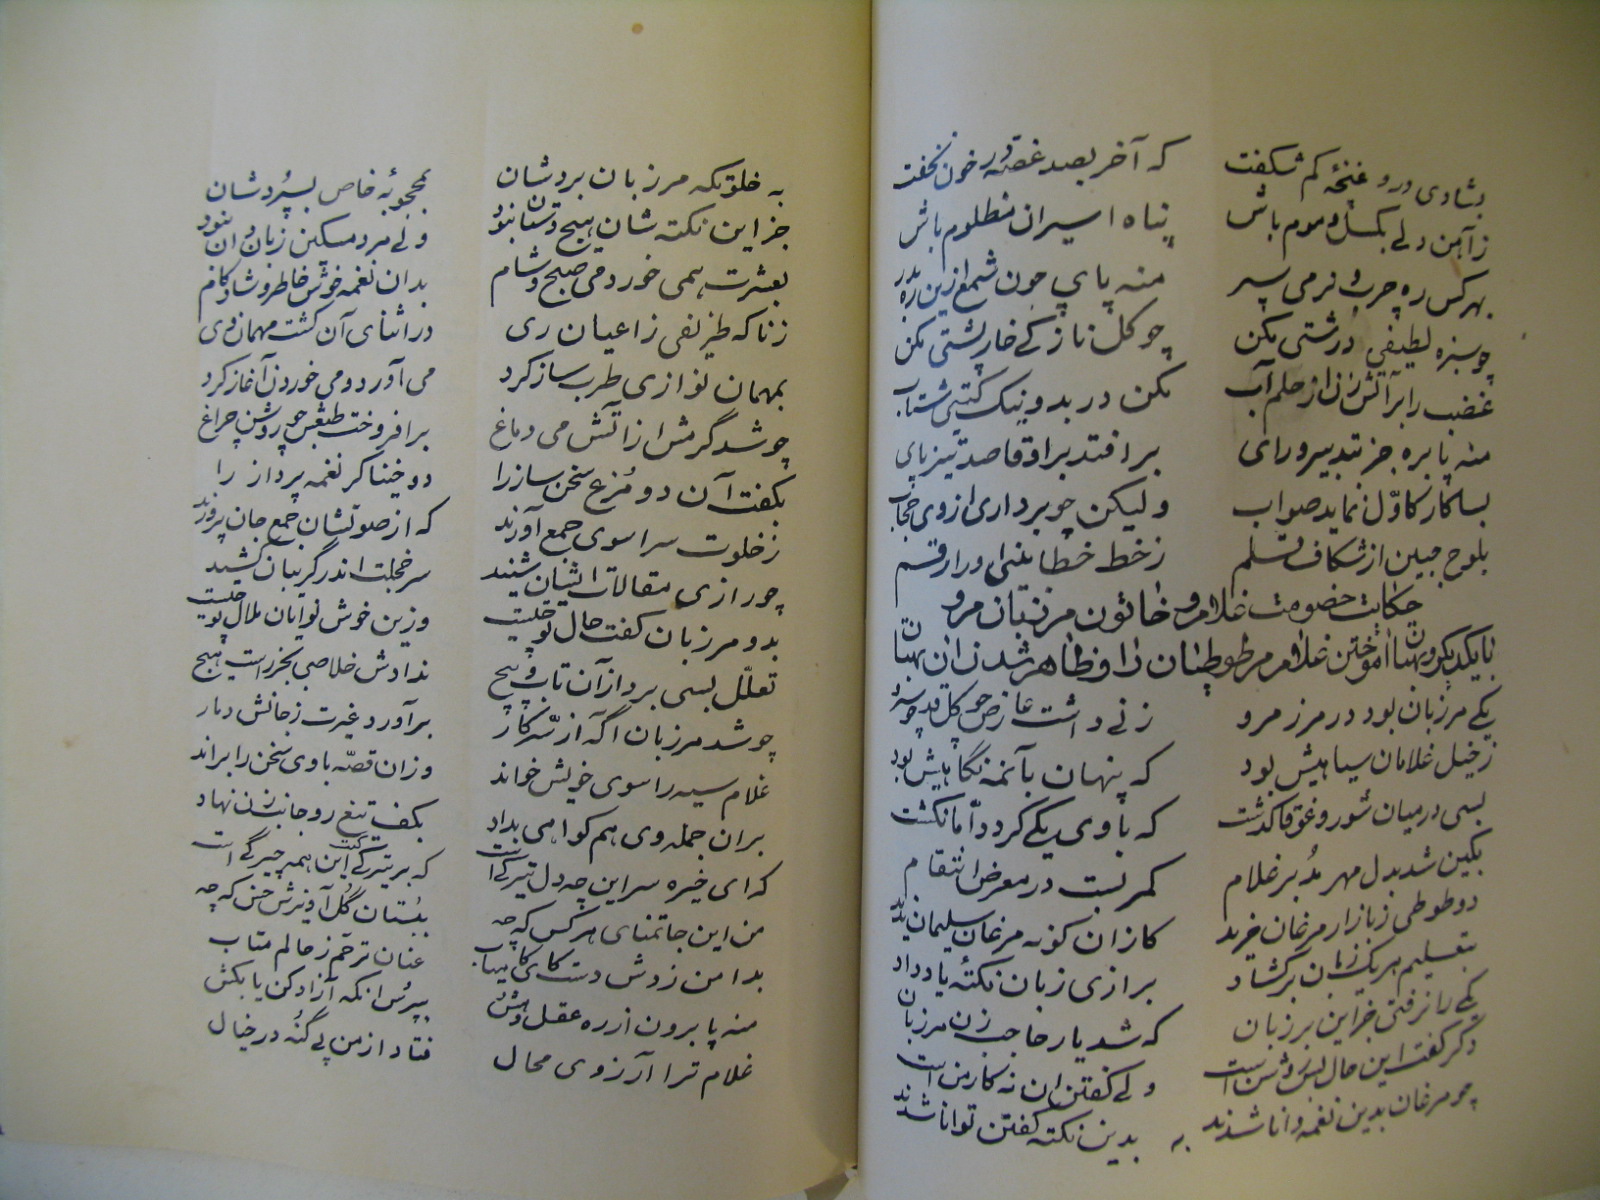 بشادی درو غنچهٔ کم شکفت که آخر بصد غصه در خون نخفت
ز آهن دلی بکسل و موم باش پناه اسیران مظلوم باش
بهر کس ره چرب و نرمی سپر منه پای چون شمع ازین ره بدر
چو سبزه لطیفی درشتی مکن چو گل نازکی خارپشتی مکن
غضب را بر آتش زن از حلم آب مکن در بد و نیک گیتی شتاب
منه پا بره جز بتدبیر و رای بر افتد براو قاصد تیزپای
بسا کار کاول نماید صواب ولیکن چو برداری از وی حجاب
بلوح جبین از شکاف قلم ز خط خطا بینی او را رقم
حکایت خصومت غلام و خاتون مرزبان مرو
با یکدیگر و پنهان آموختن غلام مر طوطیان را و ظاهر شدن آن نهان
یکی مرزبان بود در مرز مرو زنی داشت عارض چو گل قد چو سرو
ز خیل غلامان سیاهیش بود که پنهان بآن مه نگاهیش بود
بسی در میان شور و غوغا گذشت که با وی یکی گردد اما نگشت
بکین شد بدل مهر مه بر غلام کمر بست در معرض انتقام
دو طوطی ز بازار مرغان خرید کازان گونه مرغان سلیمان ندید
بتعلیم هر یک زبان برگشاد برازی زبان نکتهٔ یاد داد
یکی را نرفتی جز این بر زبان که شد یار حاجب زن مرزبان
دگر گفت این حال بس روشن است ولی گفتن آن نه کار من است
چو مرغان بدین نغمه دانا شدند بدین نکته گفتن توانا شدند
به
به خلوتگه مرزبان بردشان بمحجوبهٔ خاص بسپردشان
جز این نکته شان هیچ دستان نبود ولی مرد مسکین زبان دان نبود
بعشرت همی خورد می صبح و شام بدان نغمه خوش خاطر و شادکام
زناگه ظریفی ز اعیان ری در اثنای آن گشت مهمان وی
بمهمان نوازی طرب ساز کرد می آورد و می خوردن آغاز کرد
چو شد گرمش از آتش می دماغ برافروخت طبعش چو روشن چراغ
بگفت آن دو مرغ سخن ساز را دو خنیاگر نغمه پرداز را
ز خلوت سرا سوی جمع آورند که از صوتشان جمع جان پرورند
چو رازی مقالات ایشان شنید سر خجلت اندر گریبان کشید
بدو مرزبان گفت حال تو چیست وزین خوش نوایان ملال تو چیست
تعلل بسی برد از آن تاب و پیچ ندادش خلاصی بجز راست هیچ
چو شد مرزبان آگه از سر کار برآورد غیرت ز جانش دمار
غلام سیه را سوی خویش خواند وزان قصه با وی سخن را براند
بران جمله وی هم گواهی بداد بکف تیغ رو جانب زن نهاد
که ای خیره سر این چه دل تیرگی است که بر تیرگیت این همه چیرگی است
من این جا تمنای هر کس که چه ببستان گل آویزش خس که چه
بدامن زدش دست کای کامیاب عنان ترحم ز حالم متاب
منه پا برون از ره عقل و هش بپرس آنگه آزاد کن یا بکش
غلام ترا آرزوی محال فتاد از من بی گنه در خیال